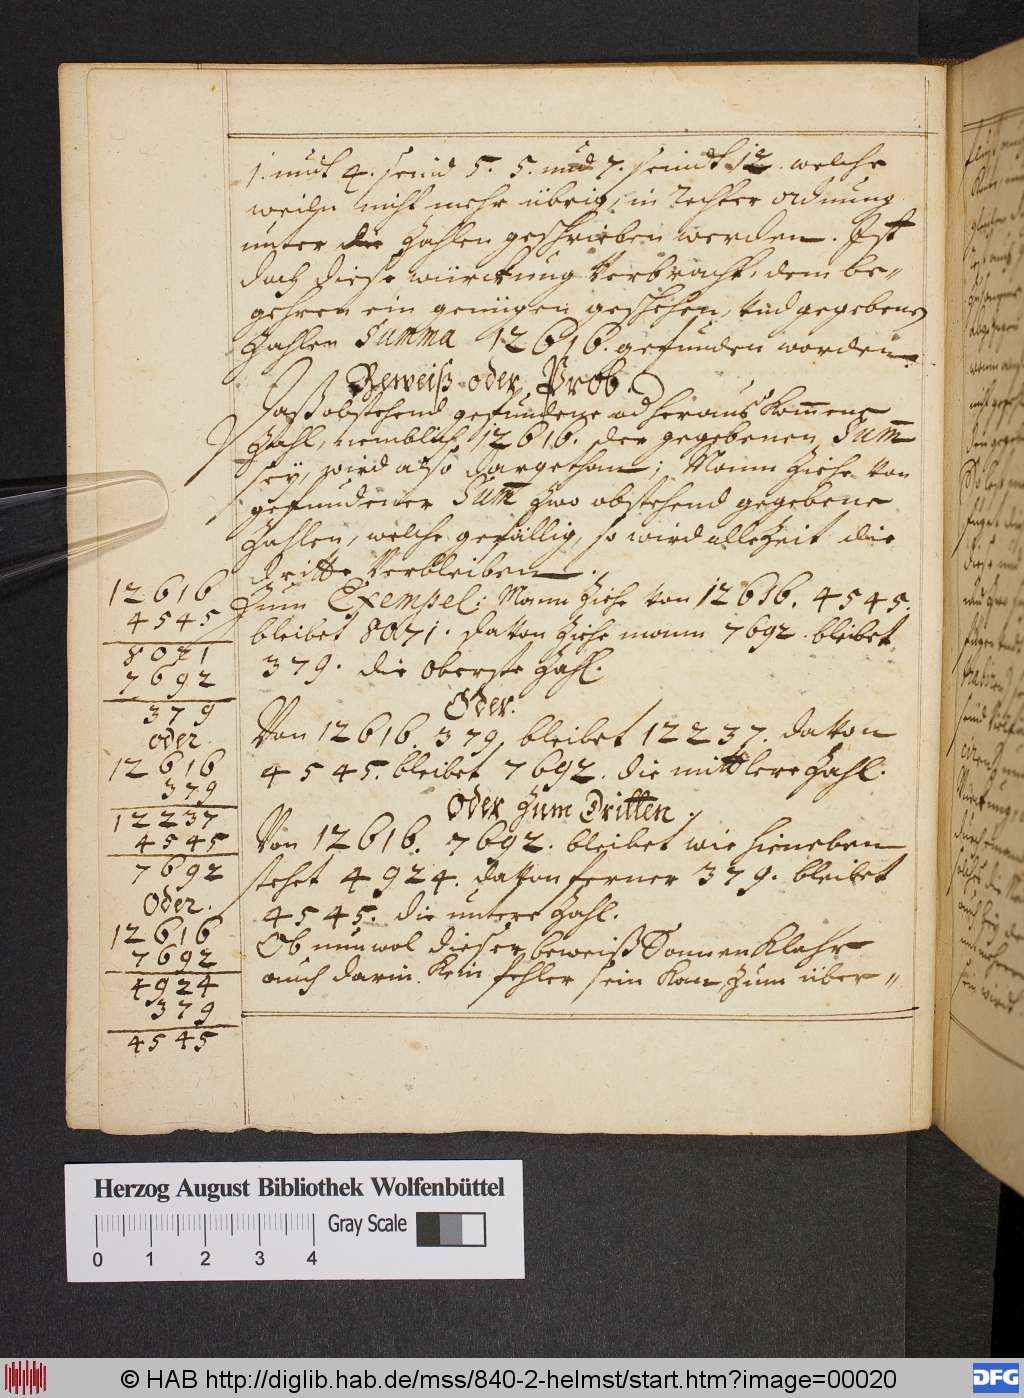 1. undt 4. seind 5. 5. und 7. seindt 12. welche
weiln nicht mehr übrig, in rechter ordnung
unter die Zahlen geschrieben werden. Ist
doch diese würckung verbracht, dem be-
gehren ein genügen geschehen, und gegebene
Zahlen Summa 12616. gefunden worden.
Beweiß oder Prob.
Daß obstehend gefundene od heraus kom̅ene
Zahl, nemblich 12616. der gegebenen Sum̅
seÿ, wird also dargethan; Mann Ziehe von
gefundener Sum̅ Zwo obstehend gegebene
Zahlen, welche gefällig, so wird allezeit die
dritte Verbleiben.
Zum Exempel: Mann Ziehe von 12616. 4545.
bleibet 8071. davon Ziehe mann 7692. bleibet
379. die oberste Zahl.
Oder.
Von 12616. 379. bleibet 12237. davon
4545. bleibet 7692. die mittlere Zahl.
Oder Zum Dritten.
Von 12616. 7692. bleibet wie hieneben
stehet 4924. davon ferner 379. bleibet
4545. die untere Zahl.
Ob nun wol dieser beweiß Sonnen Klahr
auch darin Kein fehler sein Kan, Zum über-
12616
4545
8071
7692
379
oder
12616
379
12237
4545
7692
Oder.
12616
7692
4924
379
4545
Herzog August Bibliothek Wolfenbüttel
Gray Scale
0 1 2 3 4
© HAB http://diglib.hab.de/mss/840-2-helmst/start.htm?image=00020
DFG